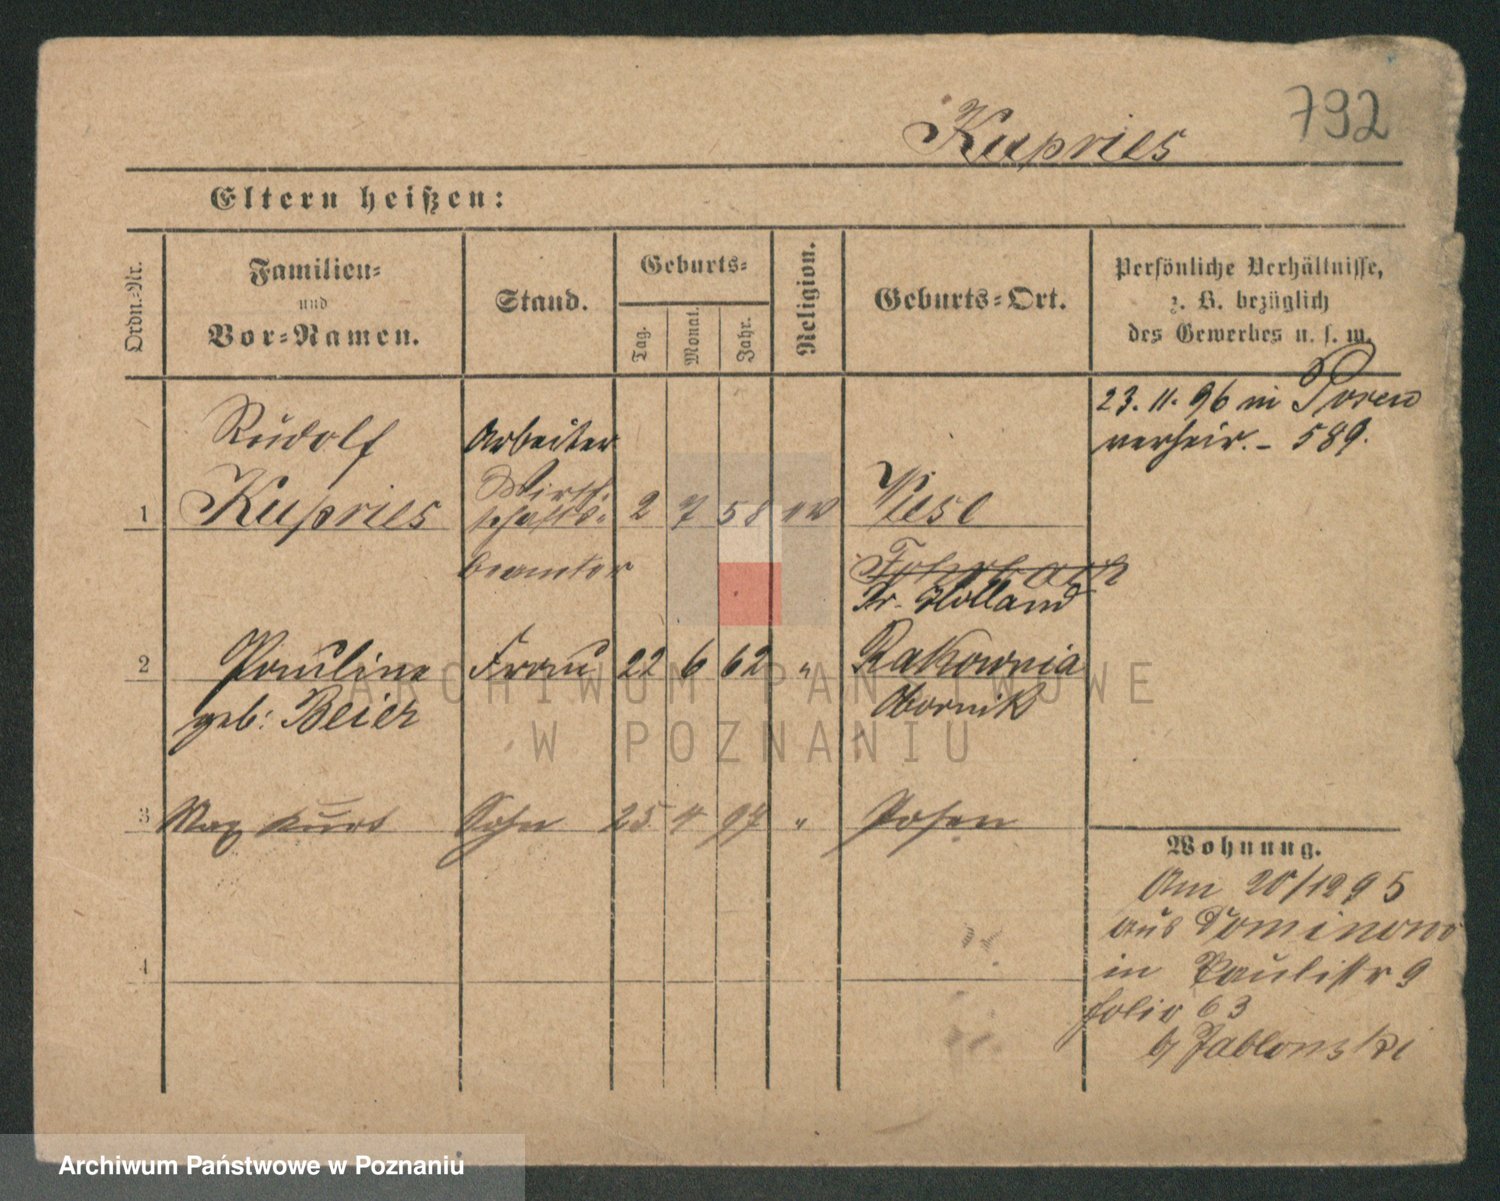 792
Kupries
Eltern heißen:
Ordn.-Nr.
Familien-
und
Vor-Namen.
Stand.
Geburts-
Tag.
Monat.
Jahr.
Religion.
Geburts-Ort.
Persönliche Verhältnisse,
z. B. bezüglich
des Gewerbes u. s. w.
23. 11. 96 in Posen
verheir. - 589.
Rudolf
Arbeiter
1 Kupries Wirth-
schafts- 2 7 58 ev Wese
beamter
Fohrbach
Pr. Holland
2 Pauline Frau 22 6 62 " Rakownia
geb: Beier Obornik
3 Max Kurt Sohn 25 4 97 " Posen
4
Wohnung.
Am 20/12 95
aus Dominowo
in Paulistr 9
folio 63
b/ Jablonski
ARCHIWUM PAŃSTWOWE
W POZNANIU
Archiwum Państwowe w Poznaniu